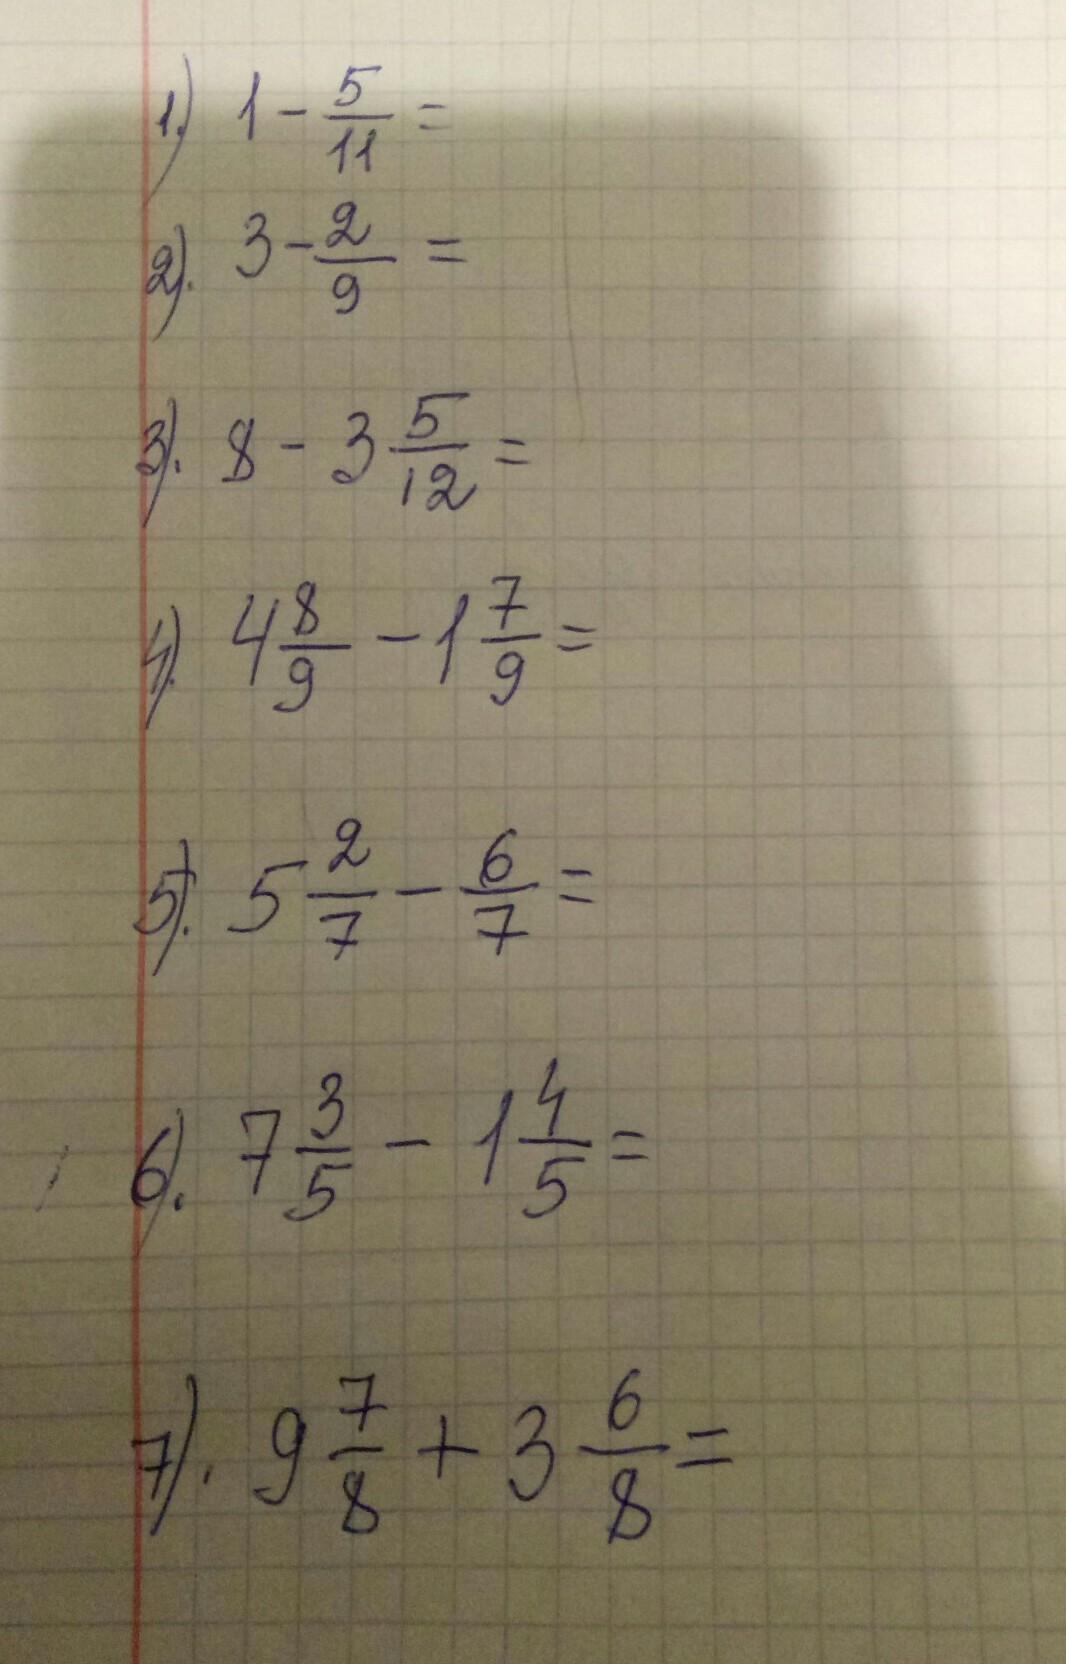 1.) 1 - 5/11 =
2). 3 - 2/9 =
3). 8 - 3 5/12 =
4). 4 8/9 - 1 7/9 =
5). 5 2/7 - 6/7 =
6). 7 3/5 - 1 4/5 =
7). 9 7/8 + 3 6/8 =